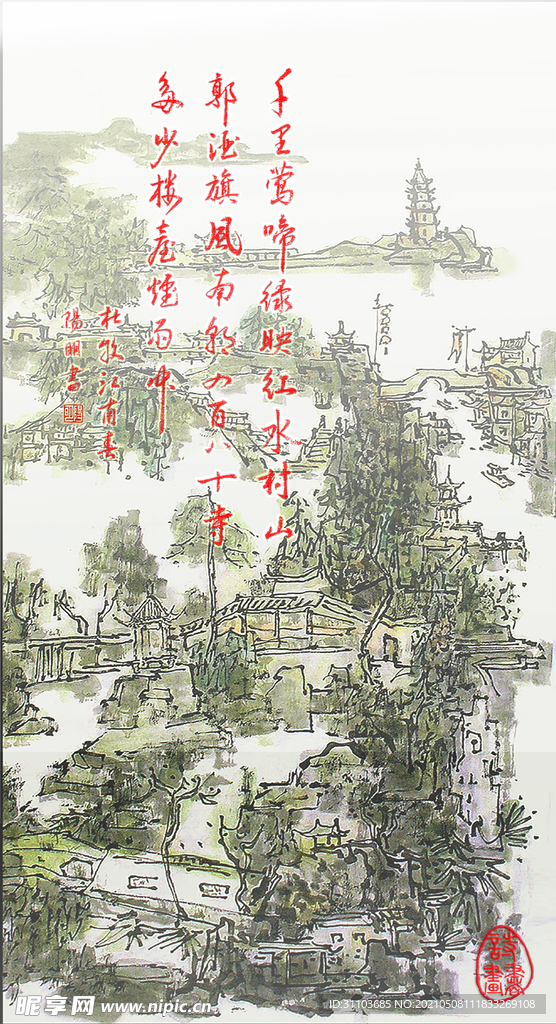 千里莺啼绿映红水村山
郭酒旗風南朝四百八十寺
多少楼臺煙雨中
杜牧江南春
陽明書
詩書畫
昵享网 www.nipic.cn
ID:31103685 NO:20210508111833269108